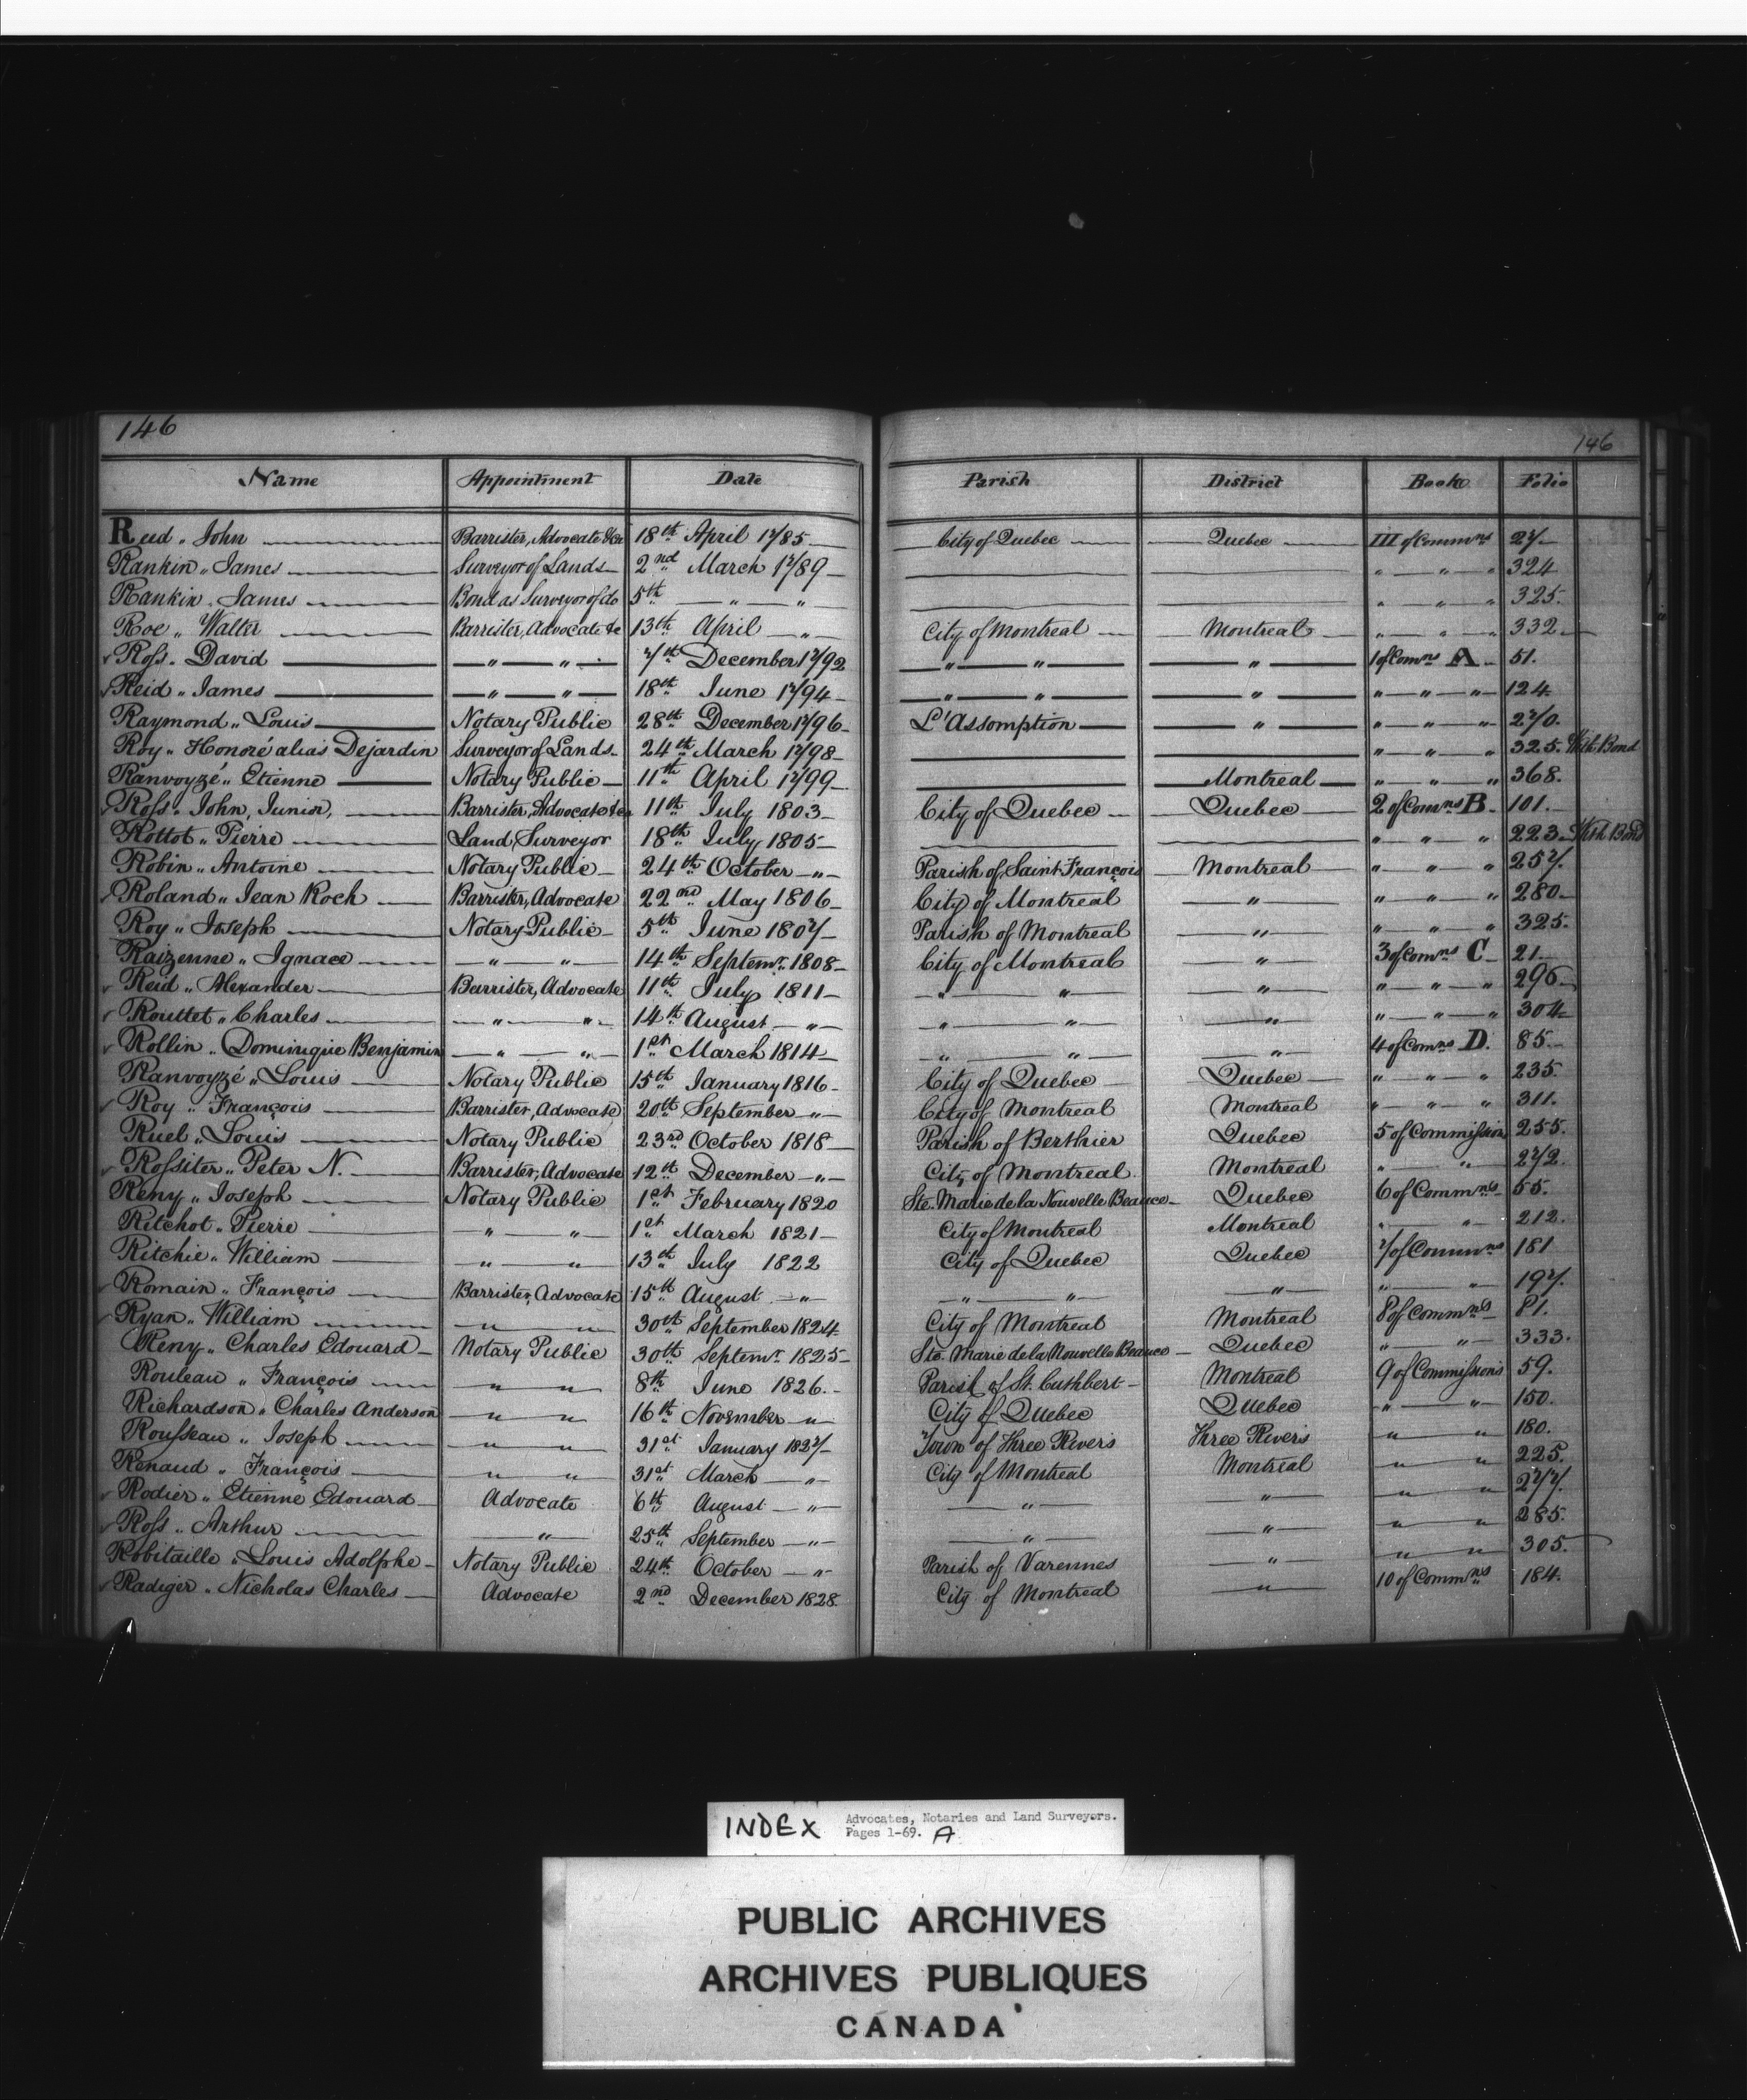 146
146
Name Appointment Date Parish District Book Folio
Reid „ John Barrister, Advocate &c 18th April 1785 City of Quebec Quebec III of Commns 27
Rankin „ James Surveyor of Lands 2nd March 1789 „ „ „ 324
Rankin „ James Bond as Surveyor of do 5th „ „ „ „ „ 325.
Roe „ Walter Barrister, Advocate &c 13th April „ City of Montreal Montreal „ „ „ 332
Ross „ David „ „ 7th December 1792 „ „ „ 1 of Comns A 51.
Reid „ James „ „ 18th June 1794 „ „ „ „ „ „ 124
Raymond „ Louis Notary Public 28th December 1796 L'Assomption „ „ „ „ 270.
Roy „ Honoré alias Dejardin Surveyor of Lands 24th March 1798 „ „ „ 325. With Bond
Ranvoyzé „ Etienne Notary Public 11th April 1799 Montreal „ „ „ 368.
Ross „ John, Junior, Barrister, Advocate &c 11th July 1803 City of Quebec Quebec 2 of Comns B 101.
Rottot „ Pierre Land Surveyor 18th July 1805 „ „ „ 223 With Bond
Robin „ Antoine Notary Public 24th October „ Parish of Saint François Montreal „ „ „ 257.
Roland „ Jean Roch Barrister, Advocate 22nd May 1806 City of Montreal „ „ „ „ 280
Roy „ Joseph Notary Public 5th June 1807 Parish of Montreal „ „ „ „ 325.
Raizenne „ Ignace „ „ 14th Septemr. 1808 City of Montreal „ 3 of Comns C 21
Reid „ Alexander Barrister, Advocate 11th July 1811 „ „ „ „ „ „ 296
Routtet „ Charles „ „ 14th August „ „ „ „ „ „ „ 304
Rollin „ Dominique Benjamin „ „ 1st March 1814 „ „ „ 4 of Comns D. 85.
Ranvoyzé „ Louis Notary Public 15th January 1816 City of Quebec Quebec „ „ „ 235.
Roy „ François Barrister, Advocate 20th September „ City of Montreal Montreal „ „ „ 311.
Ruel „ Louis Notary Public 23rd October 1818 Parish of Berthier Quebec 5 of Commission 255.
Rossiter „ Peter N. Barrister, Advocate 12th December „ City of Montreal Montreal „ „ 272.
Reny „ Joseph Notary Public 1st February 1820 Ste. Marie de la Nouvelle Beauce Quebec 6 of Commns 55.
Ritchot „ Pierre „ „ 1st March 1821 City of Montreal Montreal „ „ 212.
Ritchie „ William „ „ 13th July 1822 City of Quebec Quebec 7 of Commns 181
Romain „ François Barrister, Advocate 15th August „ „ „ „ „ „ 197.
Ryan „ William „ „ 30th September 1824 City of Montreal Montreal 8 of Commns 81.
Reny „ Charles Edouard Notary Public 30th Septemr. 1825 Ste. Marie de la Nouvelle Beauce Quebec „ „ 333.
Rouleau „ François „ „ 8th June 1826. Parish of St. Cuthbert Montreal 9 of Commissions 59.
Richardson „ Charles Anderson „ „ 16th November „ City of Quebec Quebec „ „ 150.
Rousseau „ Joseph „ „ 31st January 1827 Town of Three Rivers Three Rivers „ „ 180.
Renaud „ François „ „ 31st March „ City of Montreal Montreal „ „ 225.
Rodier „ Etienne Edouard Advocate 6th August „ „ „ „ „ 277.
Ross „ Arthur „ 25th September „ „ „ „ „ 285.
Robitaille „ Louis Adolphe Notary Public 24th October „ Parish of Varennes „ „ „ 305.
Radiger „ Nicholas Charles Advocate 2nd December 1828 City of Montreal „ 10 of Commns 184.
INDEX Advocates, Notaries and Land Surveyors.
Pages 1-69. A
PUBLIC ARCHIVES
ARCHIVES PUBLIQUES
CANADA